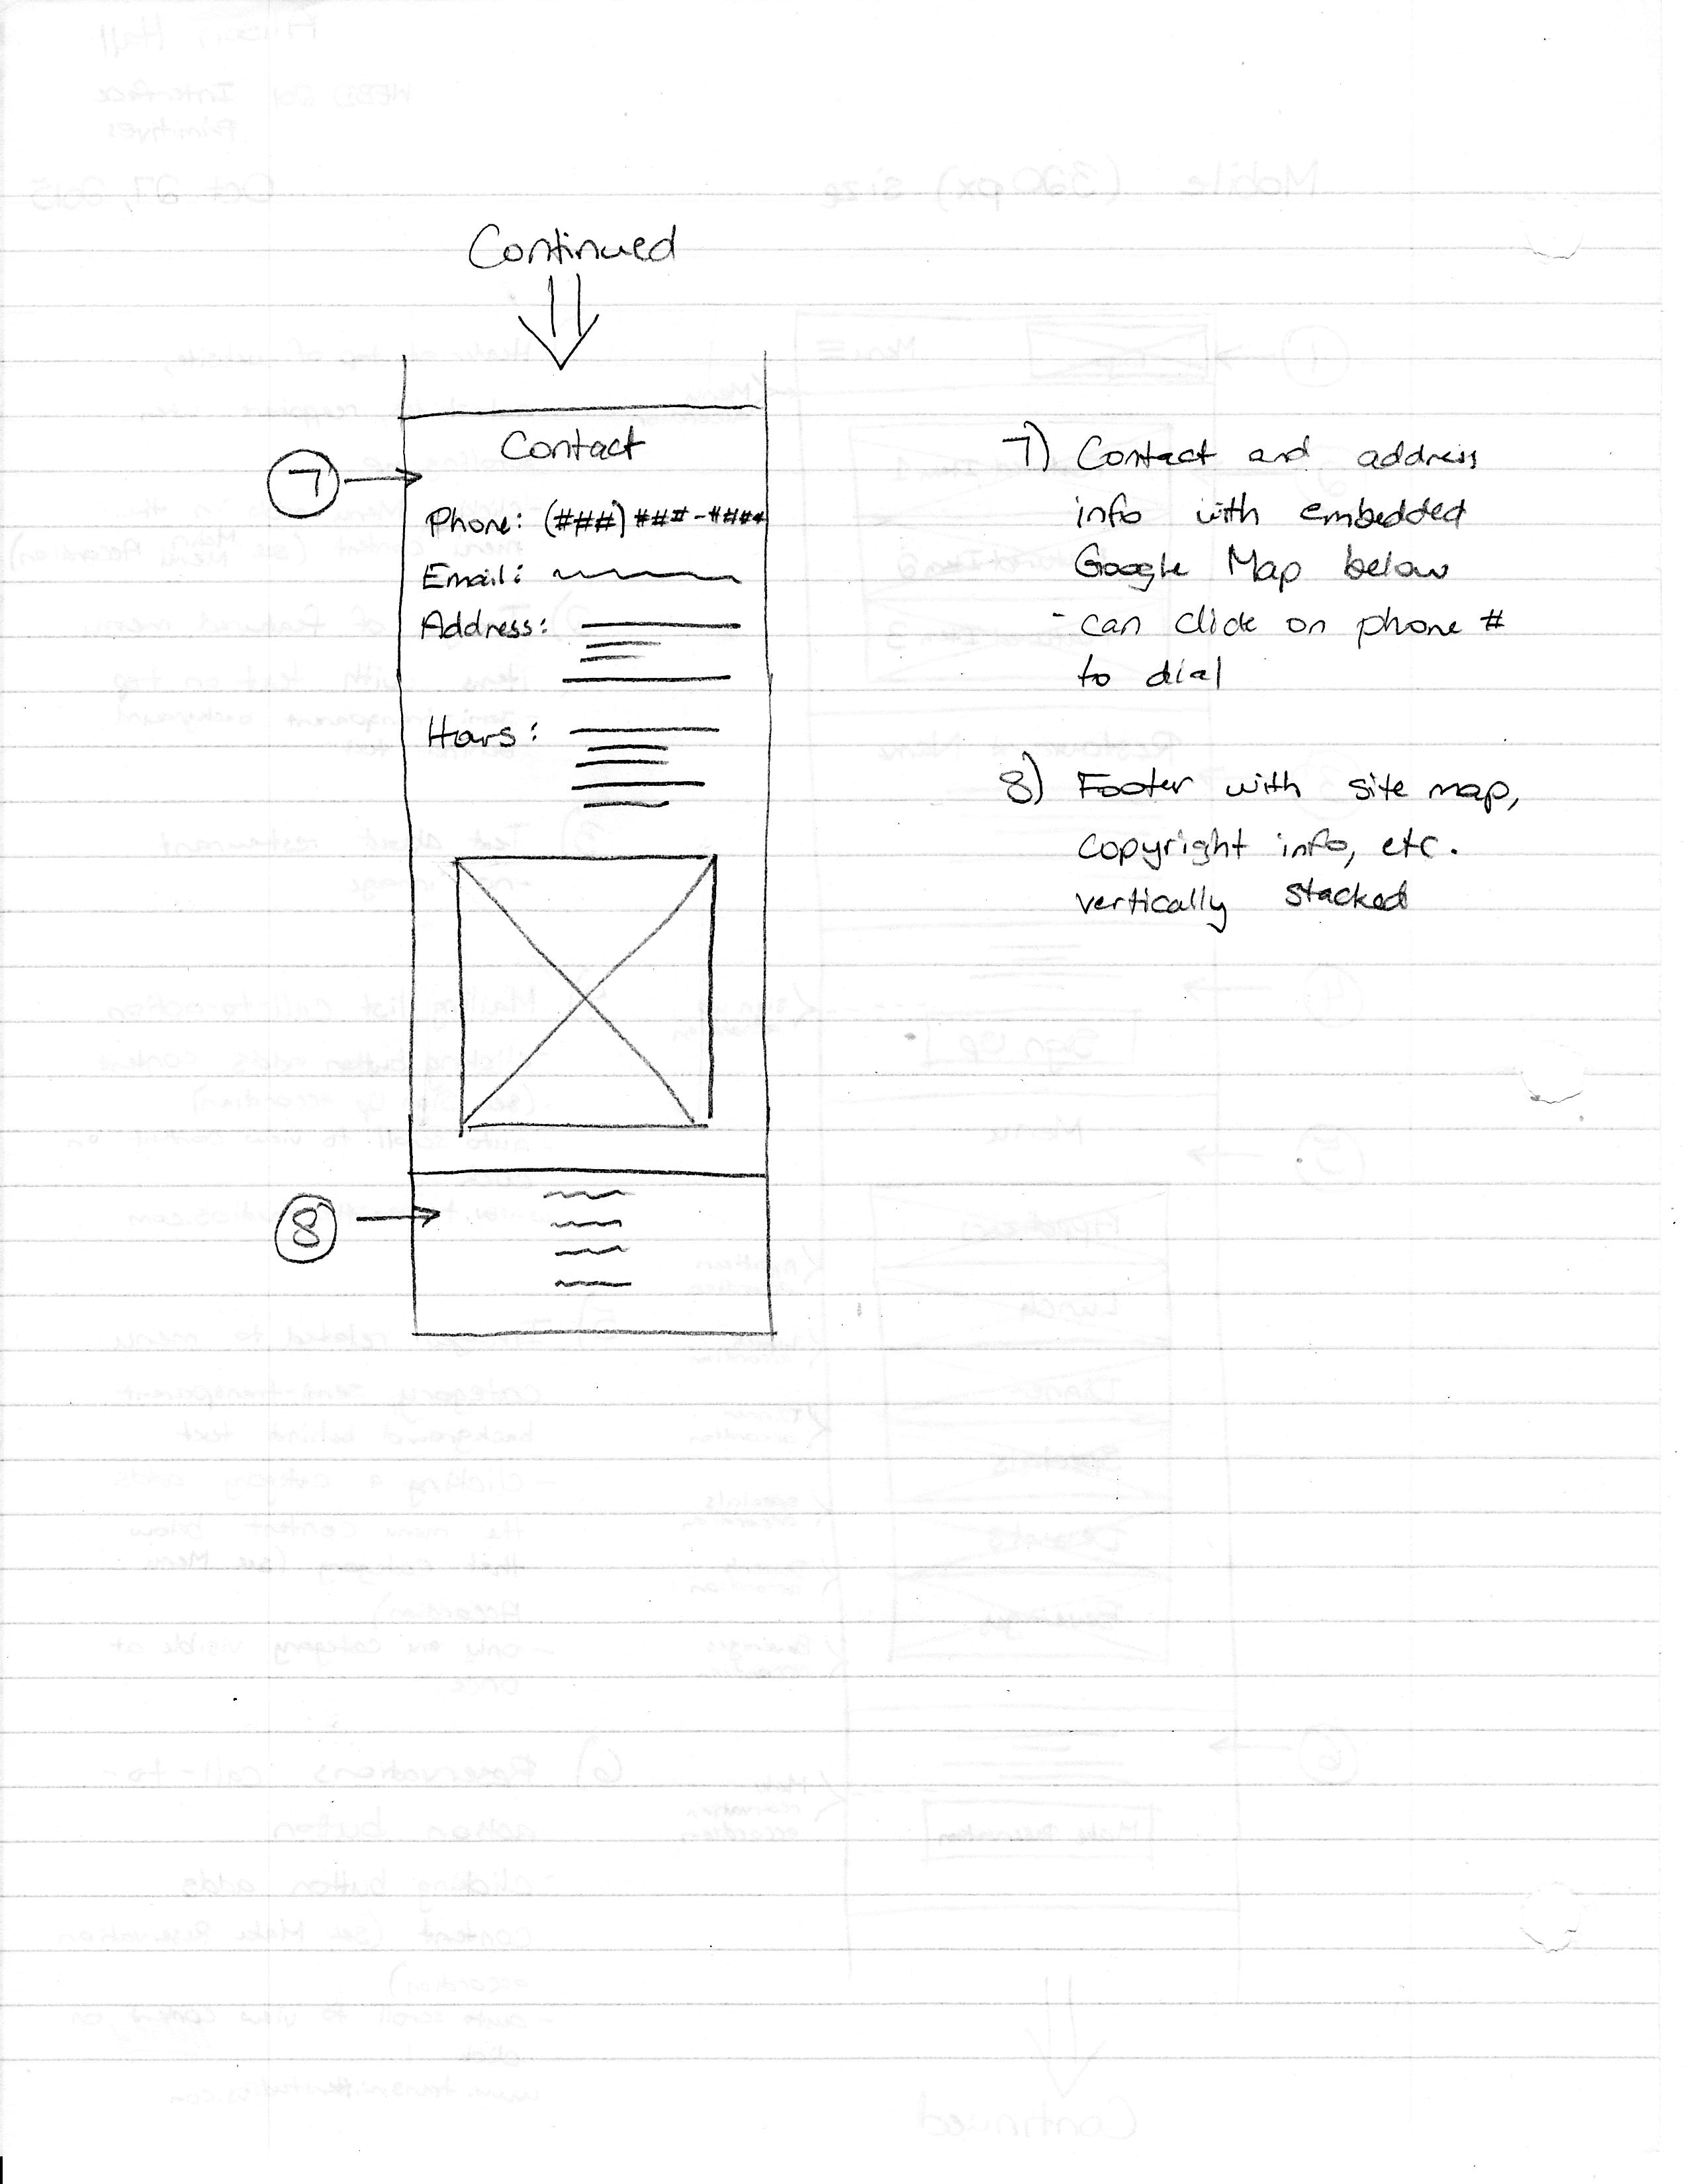 Continued
Contact
7
Phone: (###) ###-####
Email:
Address:
Hours:
8
7) Contact and address
info with embedded
Google Map below
- can click on phone #
to dial
8) Footer with site map,
copyright info, etc.
vertically stacked